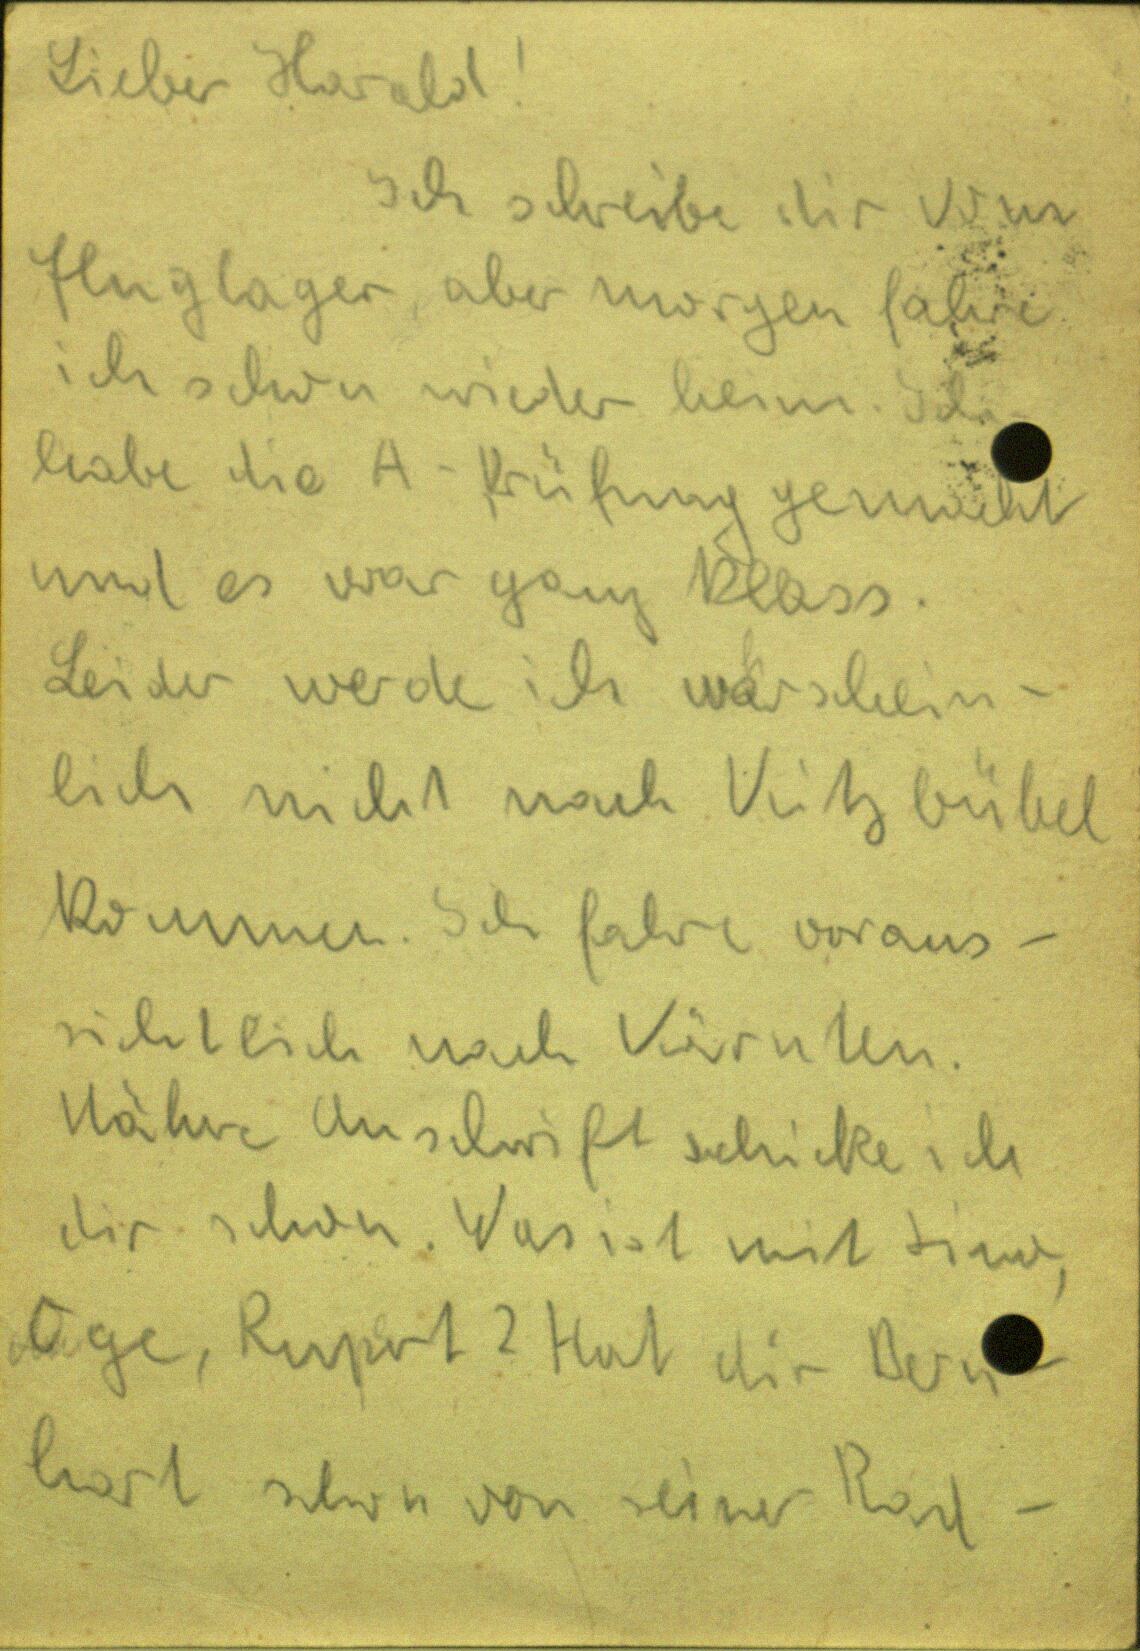 Lieber Harald!
Ich schreibe dir vom
Fluglager, aber morgen fahre
ich schon wieder heim. Ich
habe die A-Prüfung gemacht
und es war ganz klass.
Leider werde ich warschein-
lich nicht nach Kitzbübel
kommen. Ich fahre voraus-
sichtlich nach Kärnten.
Nähre Anschrift schicke ich
dir schon. Was ist mit
Oge, Rupert? Hat dir Bern-
hart schon von seiner Rad-